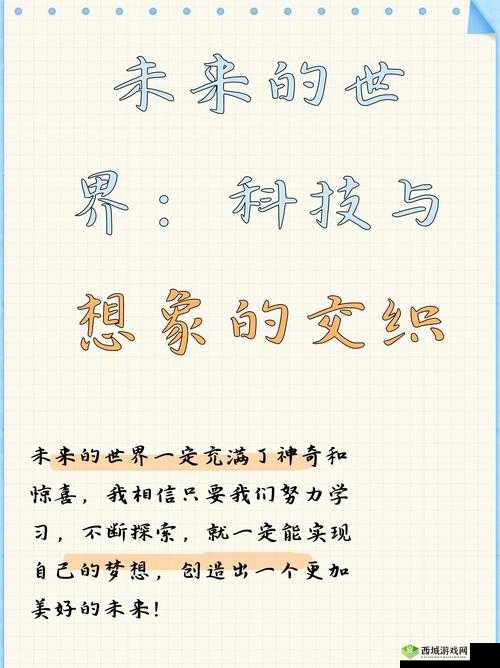 未来的世
界：科技与
想象的交织
未来的世界一定充满了神奇和
惊喜，我相信只要我们努力学
习，不断探索，就一定能实现
自己的梦想，创造出一个更加
美好的未来！
西城游戏网